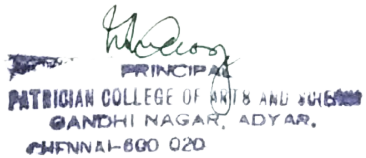 PRINCIPAL
PATRICIAN COLLEGE OF ARTS AND SCIENCE
GANDHI NAGAR, ADYAR,
CHENNAI-600 020